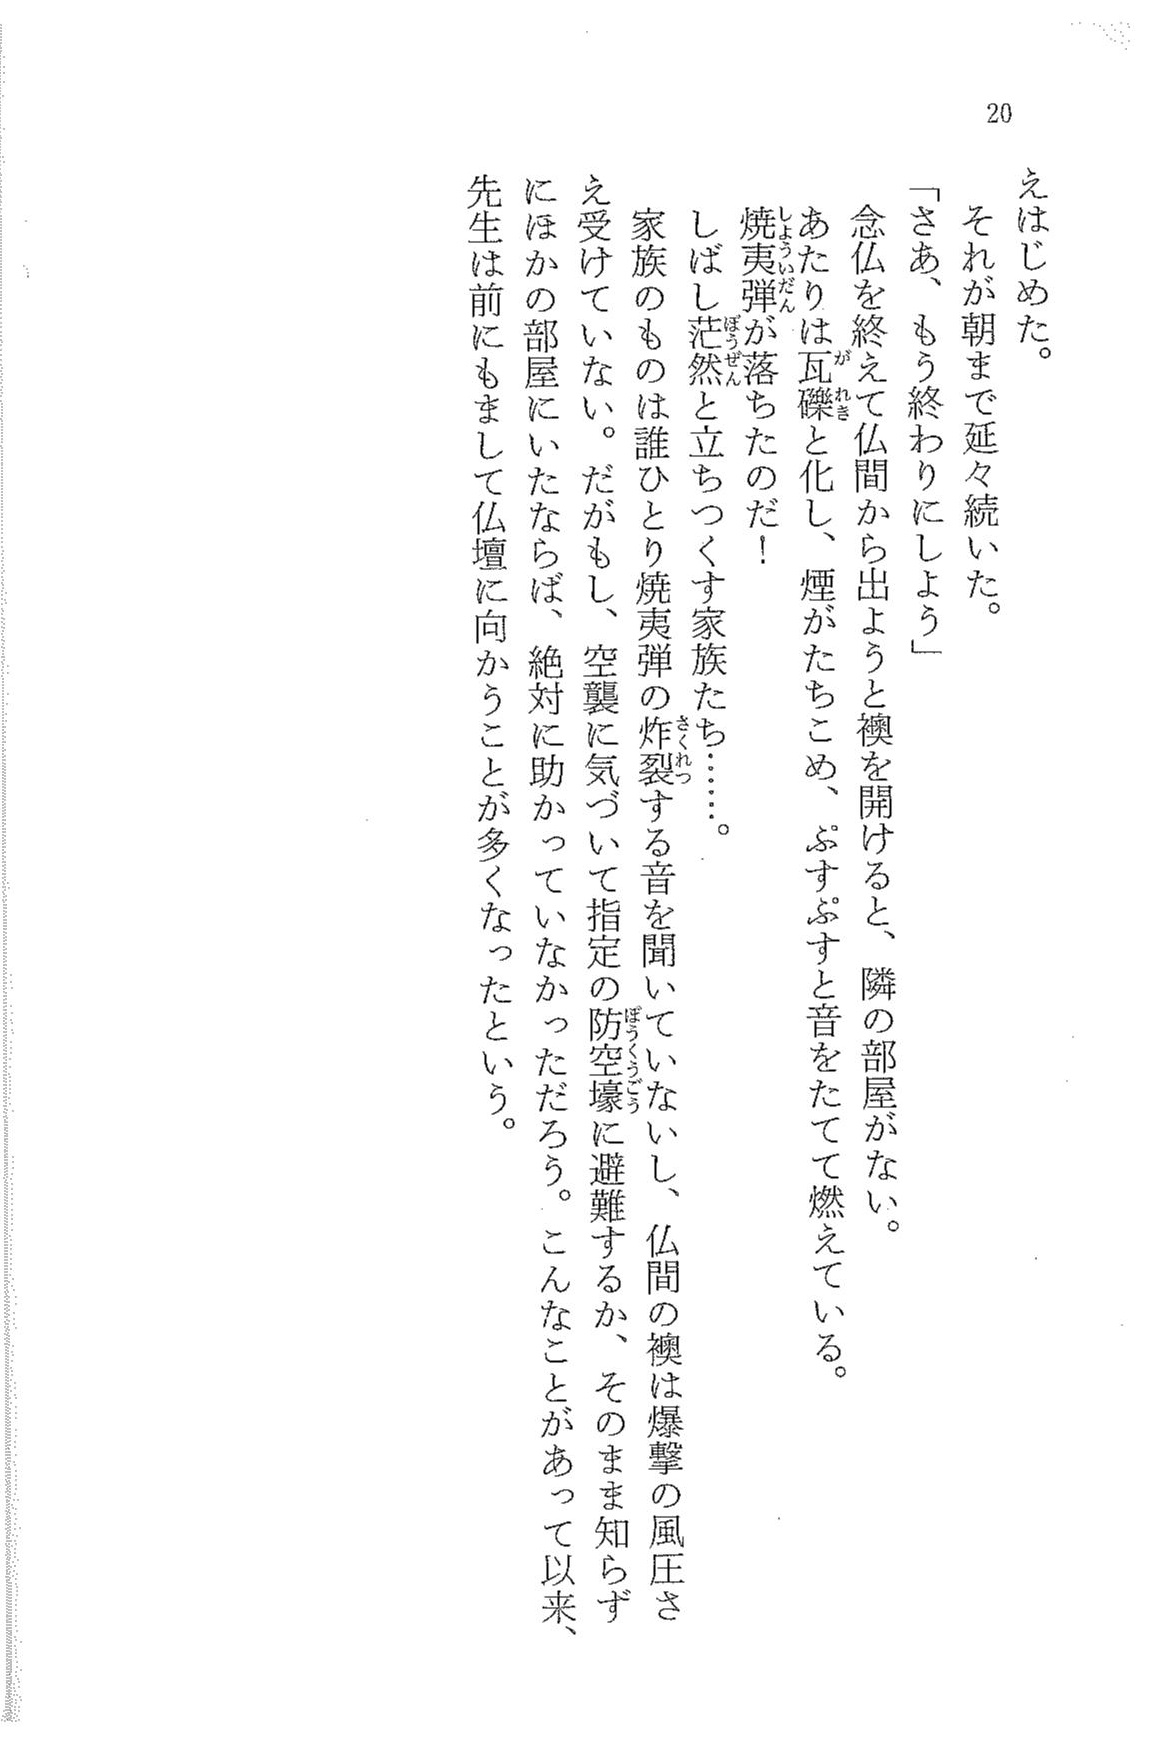 20
えはじめた。
それが朝まで延々続いた。
「さあ、もう終わりにしよう」
念仏を終えて仏間から出ようと襖を開けると、隣の部屋がない。
あたりは瓦礫と化し、煙がたちこめ、ぷすぷすと音をたてて燃えている。
焼夷弾が落ちたのだ！
しばし茫然と立ちつくす家族たち……。
家族のものは誰ひとり焼夷弾の炸裂する音を聞いていないし、仏間の襖は爆撃の風圧さ
え受けていない。だがもし、空襲に気づいて指定の防空壕に避難するか、そのまま知らず
にほかの部屋にいたならば、絶対に助かっていなかっただろう。こんなことがあって以来、
先生は前にもまして仏壇に向かうことが多くなったという。